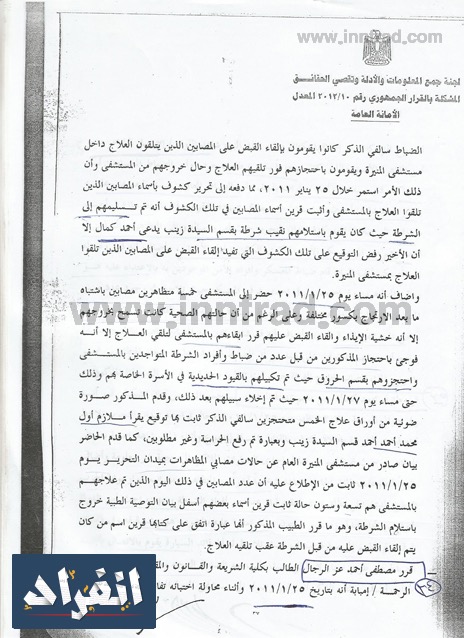 www.innfrad.com
لجنة جمع المعلومات والأدلة وتقصي الحقائق
المشكلة بالقرار الجمهوري رقم ٢٠١٢/١٠ المعدل
الأمانة العامة
الضباط سالفي الذكر كانوا يقومون بإلقاء القبض على المصابين الذين يتلقون العلاج داخل
مستشفى المنيرة ويقومون باحتجازهم فور تلقيهم العلاج وحال خروجهم من المستشفى وأن
ذلك الأمر استمر خلال ٢٥ يناير ٢٠١١، مما دفعه إلى تحرير كشوف بأسماء المصابين الذين
تلقوا العلاج بالمستشفى وأثبت قرين أسماء المصابين في تلك الكشوف أنه تم تسليمهم إلى
الشرطة حيث كان يقوم باستلامهم نقيب شرطة بقسم السيدة زينب يدعى أحمد كمال إلا
أن الأخير رفض التوقيع على تلك الكشوف التي تفيد إلقاء القبض على المصابين الذين تلقوا
العلاج بمستشفى المنيرة.
وأضاف أنه مساء يوم ٢٠١١/١/٢٥ حضر إلى المستشفى خمسة متظاهرين مصابين باشتباه
ما بعد الارتجاج بكسور مختلفة وعلى الرغم من أن حالتهم الصحية كانت تسمح بخروجهم
إلا أنه خشية الإيذاء والقاء القبض عليهم قرر ابقاءهم بالمستشفى لتلقي العلاج إلا أنه
فوجئ باحتجاز المذكورين من قبل عدد من ضباط وأفراد الشرطة المتواجدين بالمستشفى
واحتجزوهم بقسم الحروق حيث تم تكبيلهم بالقيود الحديدية في الأسرة الخاصة بهم وذلك
حتى مساء يوم ٢٠١١/١/٢٧ حيث تم إخلاء سبيلهم بعد ذلك، وقدم المذكور صورة
ضوئية من أوراق علاج الخمس متحتجزين سالفي الذكر ثابت بها توقيع يقرأ ملازم أول
محمد أحمد أحمد قسم السيدة زينب وبعبارة تم رفع الحراسة وغير مطلوبين، كما قدم الحاضر
بيان صادر من مستشفى المنيرة العام عن حالات مصابي المظاهرات بميدان التحرير يوم
٢٠١١/١/٢٥ ثابت من الإطلاع عليه أن عدد المصابين في ذلك اليوم الذين تم علاجهم
بالمستشفى هم تسعة وستون حالة ثابت قرين أسماء بعضهم أسفل بيان التوصية الطبية خروج
باستلام الشرطة، وهو ما قرر الطبيب المذكور أنها عبارة اتفق على كتابها قرين اسم من كان
يتم إلقاء القبض عليه من قبل الشرطة عقب تلقيه العلاج.
قرر مصطفى أحمد عز الرجال الطالب بكلية الشريعة والقانون
الرحمة / إمبابة أنه بتاريخ ٢٠١١/١/٢٥ وأثناء محاولة اختبائه
٣٤
٣٧
www.innfrad.com
www.innfrad.com
انفراد